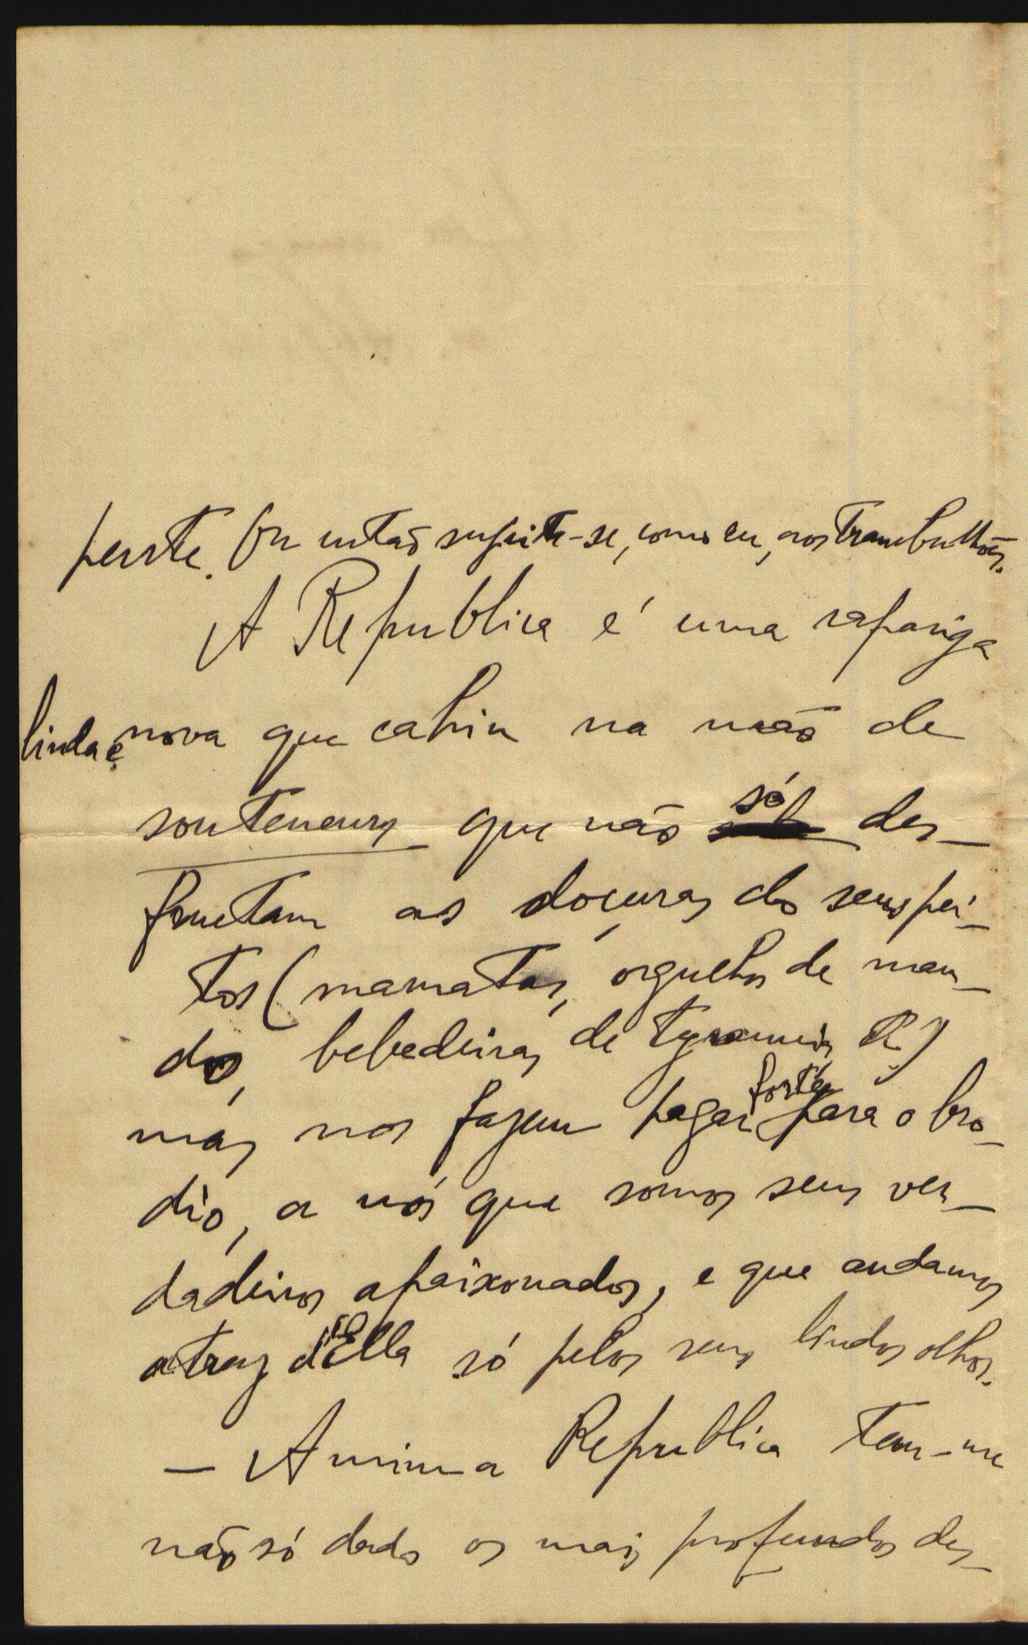 peste. Ou então sugeite-se, como eu, aos trambulhões.
A Republica é uma rapariga
linda e nova que cahiu na mão de
souteneurs que não só des-
fructam as doçuras do seus pei-
tos (mamatas, orgulhos de man-
do, bebedeiras de tyrannia, &)
mas nos fazem pagar forte para o bro-
dio, a nós que somos seus ver-
dadeiros apaixonados, e que andamos
atraz d'Ella só pelos seus lindos olhos.
— A mim a Republica tem-me
não só dado os mais profundos des-